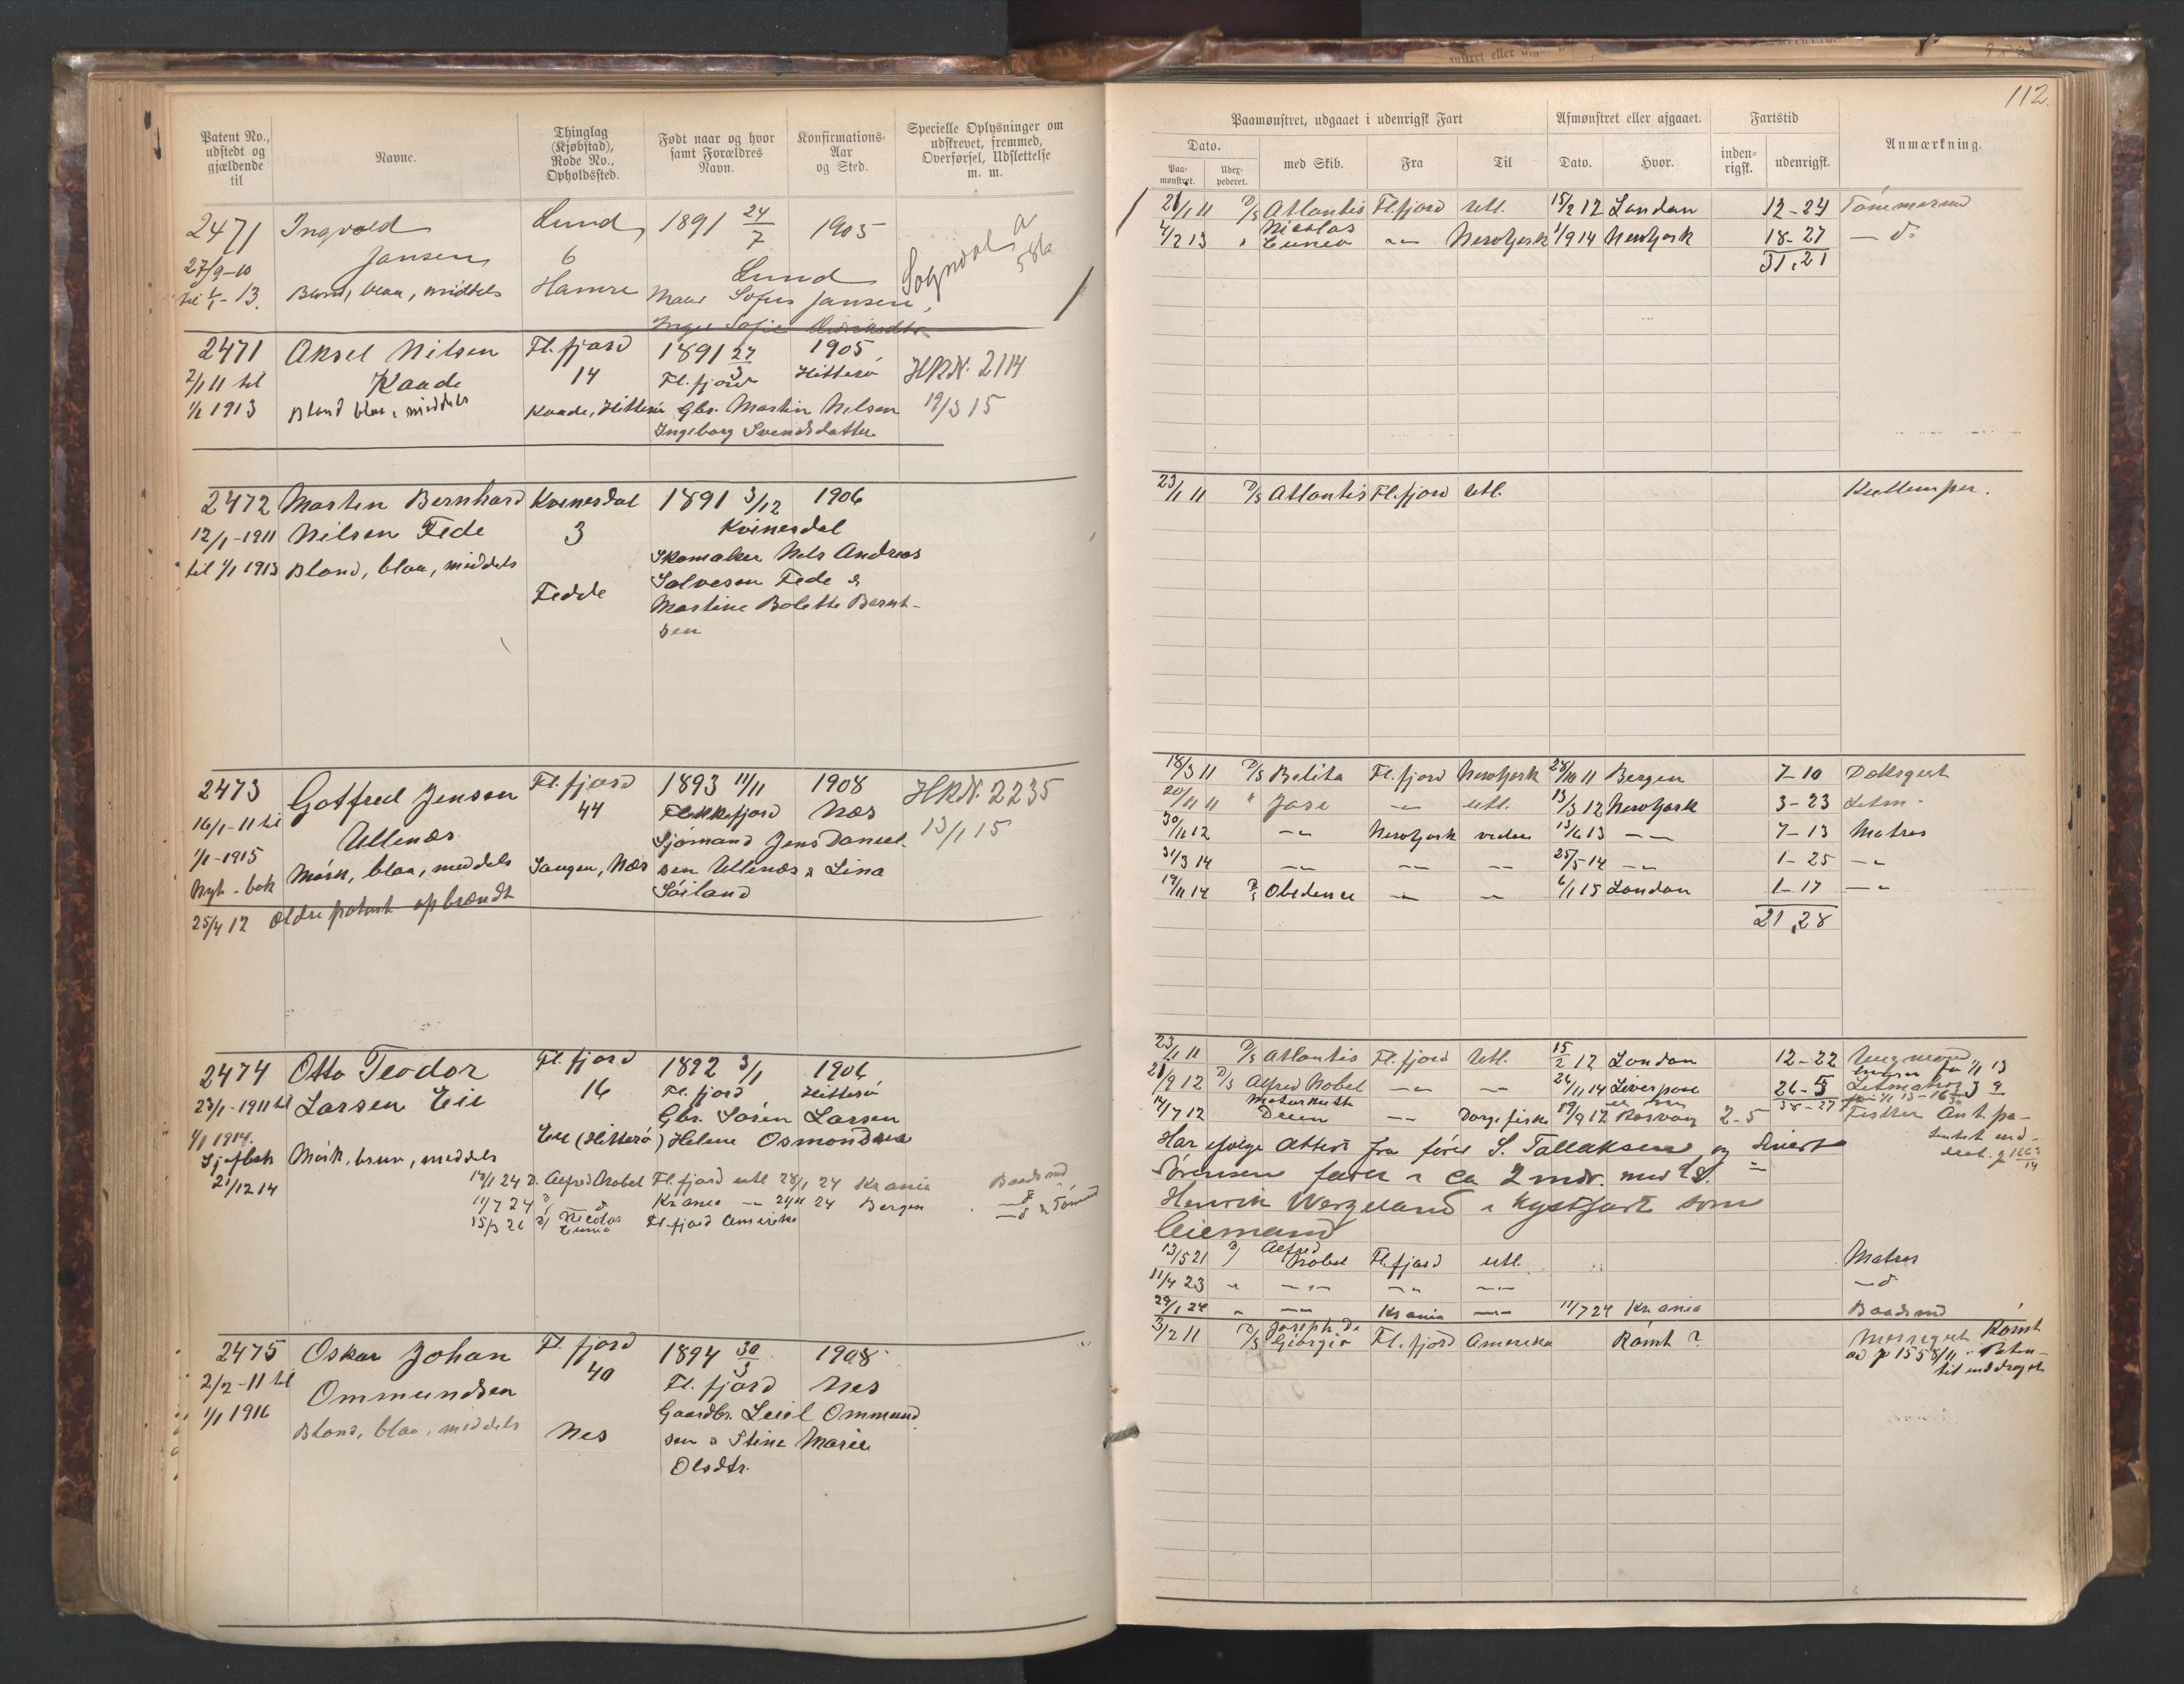 112.
Patent No., udstedt og gjældende til
Navne.
Thinglag (Kjøbstad), Rode No., Opholdssted.
Født naar og hvor samt Forældres Navn.
Konfirmations-Aar og Sted.
Specielle Oplysninger om udskrevet, fremmed, Overførsel, Udslettelse m. m.
2471 Ingvald Lund 1891 24/7 1905
27/9-10 Jansen 6 Lund Sogndal a 58a
til 1/1-13. Blond, blaa, middels Hamre Sofus Jansen,
Inger Sofie
2471 Aksel Nilsen Fl.fjord 1891 27/3 1905
2/1 11 til Kaade 14 Fl. fjord Hitterø HRN. 2114
1/1 1913 Blond blaa, middels Kaade, Hitterø Gbr. Martin Nilsen 19/3 15
Ingeborg Svendsdatter
2472 Martin Bernhard Kvinesdal 1891 3/12 1906
12/1-1911 Nilsen Fede 3 Kvinesdal
til 1/1 1913 Blond, blaa, middels Skomaker Nels Andreas
Fedde Salvesen Fede &
Martine Bolette Bernt-
sen
2473 Gotfred Jensen Fl. fjord 1893 11/11 1908 HRN. 2235
16/1-11 til Ullenæs 44 Flekkefjord Næs 13/1 15
1/1-1915 Sjømand Jens Daniel-
Nyt-bok Mørk, blaa, middels Saugen, Næs sen Ullenæs & Lina
25/4 12 ældre patent opbrændt Søiland
2474 Otto Teodor Fl. fjord 1892 3/1 1906
23/1-1911 til Larsen Eie 16 Fl. fjord Hitterø
1/1 1914. Gbr. Søren Larsen
Sjøfbok Mørk, brun, middels Eie (Hitterø) Helene Osmondsen
21/12 14 19/1 24 D. Alfred Nobel Fl. fjord utl 28/1 24 Krania Baadsmd
11/7 24 Krania 24 Bergen
15/3 26 Nicolas Cuneo Fl.fjord Amerika
2475 Oskar Johan Fl. fjord 1894 30/3 1908
2/2-11 til Ommundsen 40 Fl. fjord Nes
1/1 1916 Gaardbr. Ommund
Blond, blaa, middels Nes sen & Stine Marie
Olsdtr.
Paamønstret, udgaaet i udenrigsk Fart
Afmønstret eller afgaaet.
Fartstid
Anmærkning.
Dato.
Paa-mønstret. Uder-pederet. med Skib. Fra Til Dato. Hvor. inden-rigsk. udenrigsk.
21/1 11 D/S Atlantis Fl.fjord Utl. 15/2 12 London 12-24 Tømmermd
4/2 13 " Nicolas Cuneo -"- NewYork 1/9 14 NewYork 18-27 - do
31,21
23/1 11 D/S Atlantis Fl.fjord Utl. Kullemper.
18/3 11 D/S Belita Fl. fjord NewYork 28/10 11 Bergen 7-10 Doksgut
20/11 11 " Jose -"- utl. 13/3 12 NewYork 3-23 Letm-
30/11 12 -"- NewYork videre 13/6 13 -"- 7-13 Matros
31/3 14 -"- -"- -"- 25/5 14 -"- 1-25 -"-
19/11 14 D/S Obedense -"- -"- 6/1 15 London 1-17 -"-
21,28
23/1 11 D/S Atlantis Fl. fjord Utl. 15/2 12 London 12-22 Ungmand
21/9 12 D/S Alfred Nobel -"- -"- 26/11 14 Liverpool 26-5 Letmatros
38-27
14/7 12 Motorkutt. Dorgefiske 17/9 12 Rosvaag 2-5 Fisker Ant. pa-
Har ifølge Attest fra fører S. Tallaksen og Sivert tentet ind-
Sørensen faret i ca 2 mdr. med D/S. drat.
Henrik Wergeland i kystfart som
Leiemand
13/5 21 D/ Alfred Nobel Fl. fjord utl. Matros
11/4 23 " -"- -"- -"- - do
29/1 24 " -"- Krania -"- 11/7 24 Krania Baadsmd
3/2 11 D/S Joseph De Giorgio Fl. fjord Amerika Rømt? Messegut Rømt
1558/11. Paten-
tet inddraget